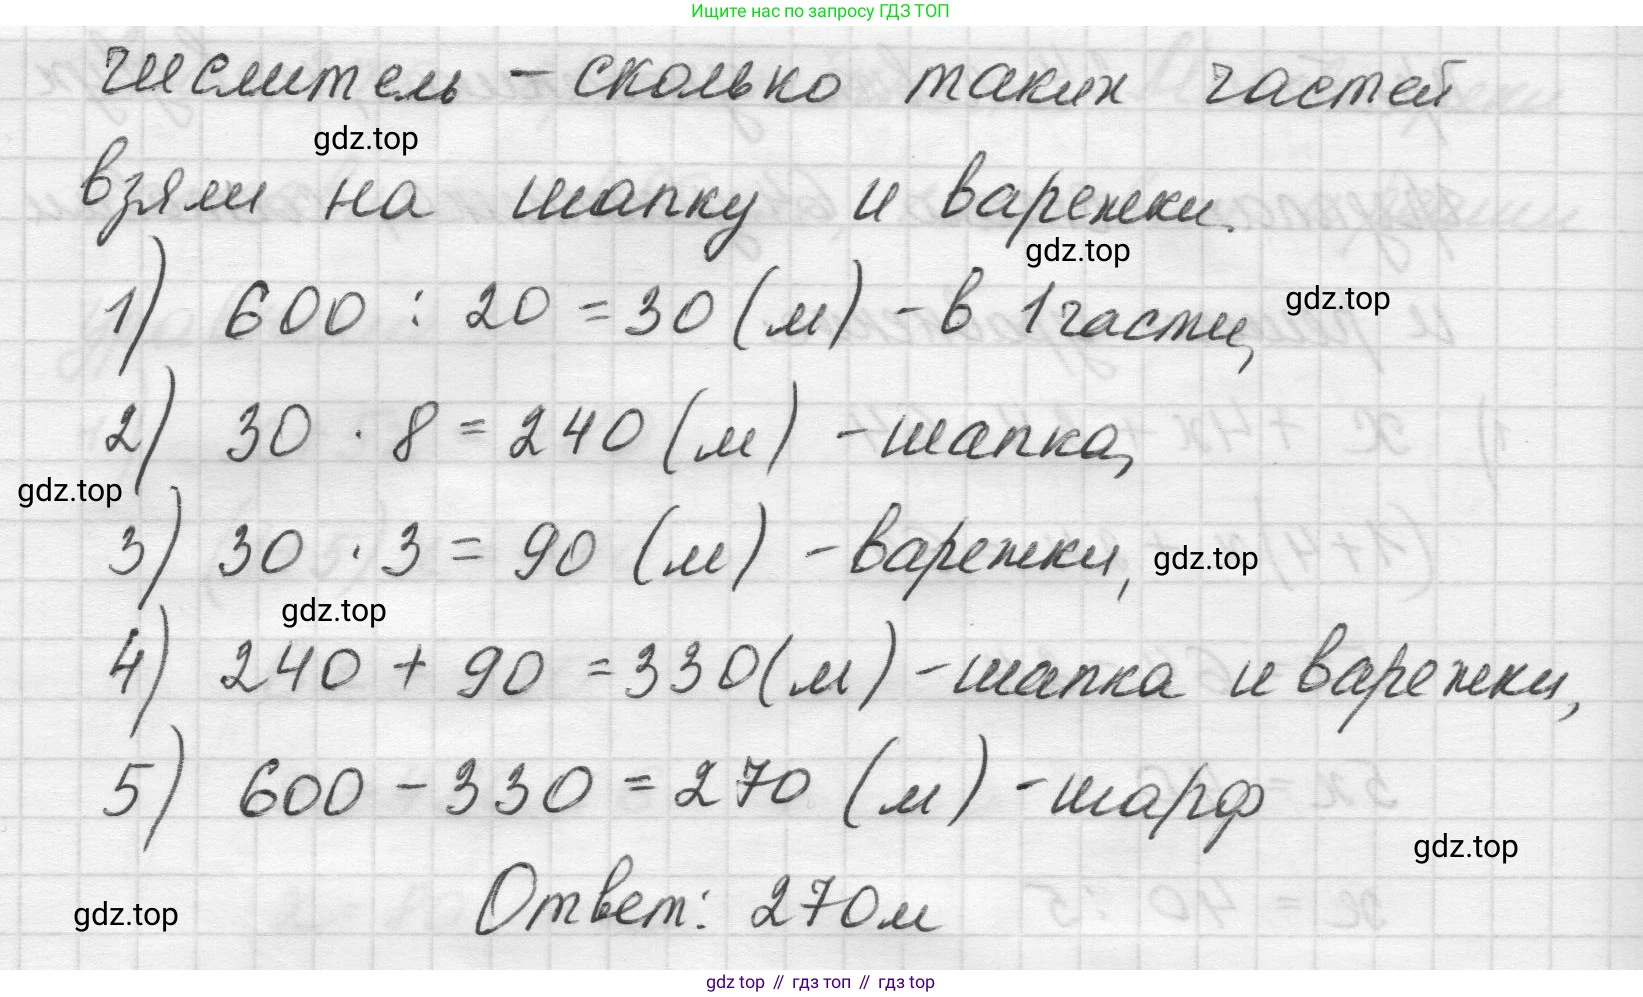 Ищите нас по запросу ГДЗ ТОП
числитель – сколько таких частей
gdz.top
взяли на шапку и варежки.
gdz.top
1) 600 : 20 = 30 (м) – в 1 части,
gdz.top
2) 30 · 8 = 240 (м) – шапка,
gdz.top
3) 30 · 3 = 90 (м) – варежки,
gdz.top
gdz.top
4) 240 + 90 = 330 (м) – шапка и варежки,
5) 600 – 330 = 270 (м) – шарф
gdz.top
Ответ: 270 м
gdz.top
gdz top // гдз топ // гдз top